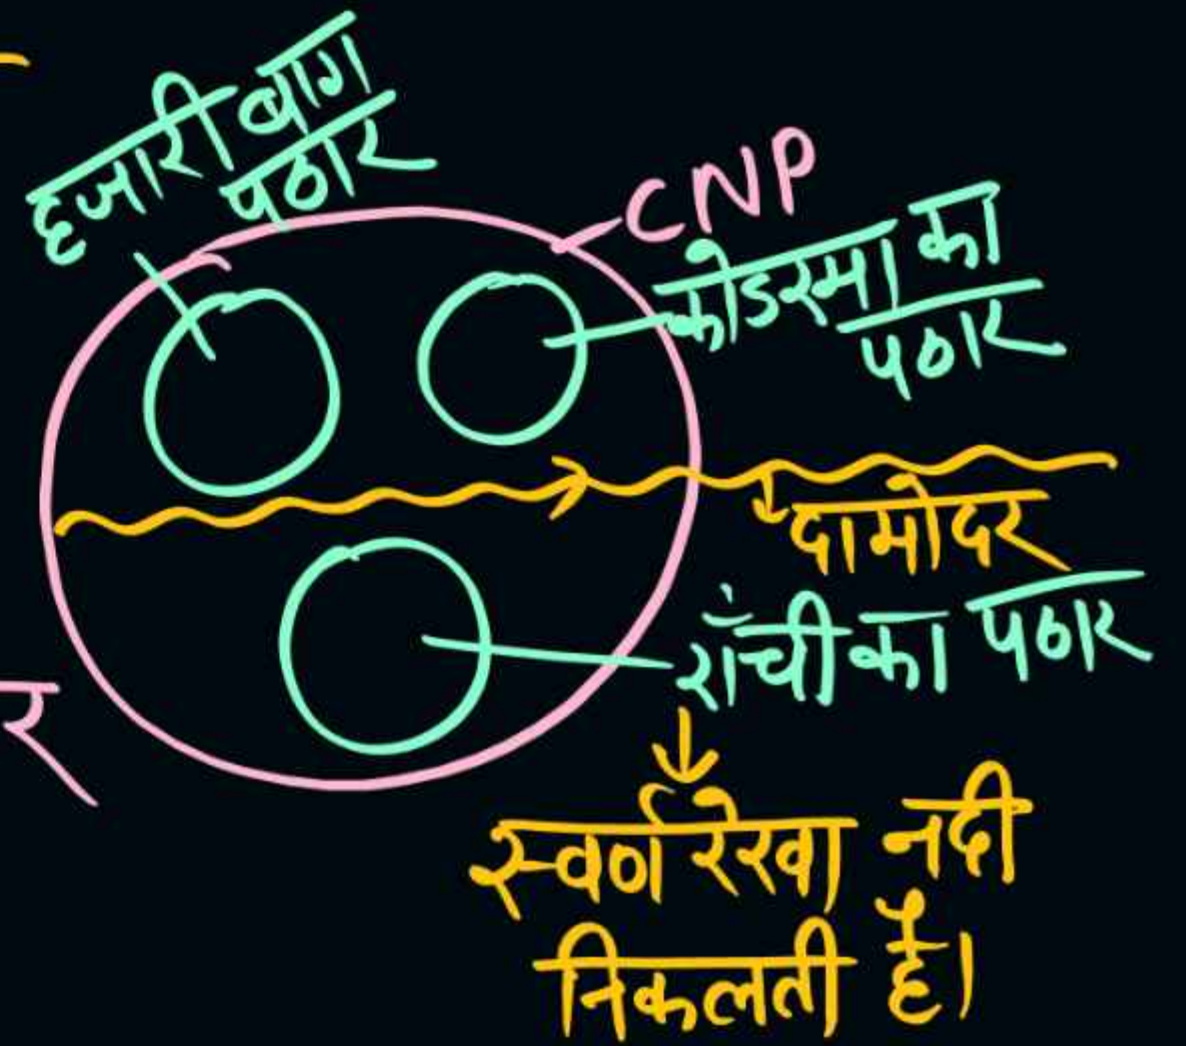 हजारी बाग
पठार
CNP
कोडरमा का
पठार
दामोदर
राँची का पठार
र
स्वर्ण रेखा नदी
निकलती है।